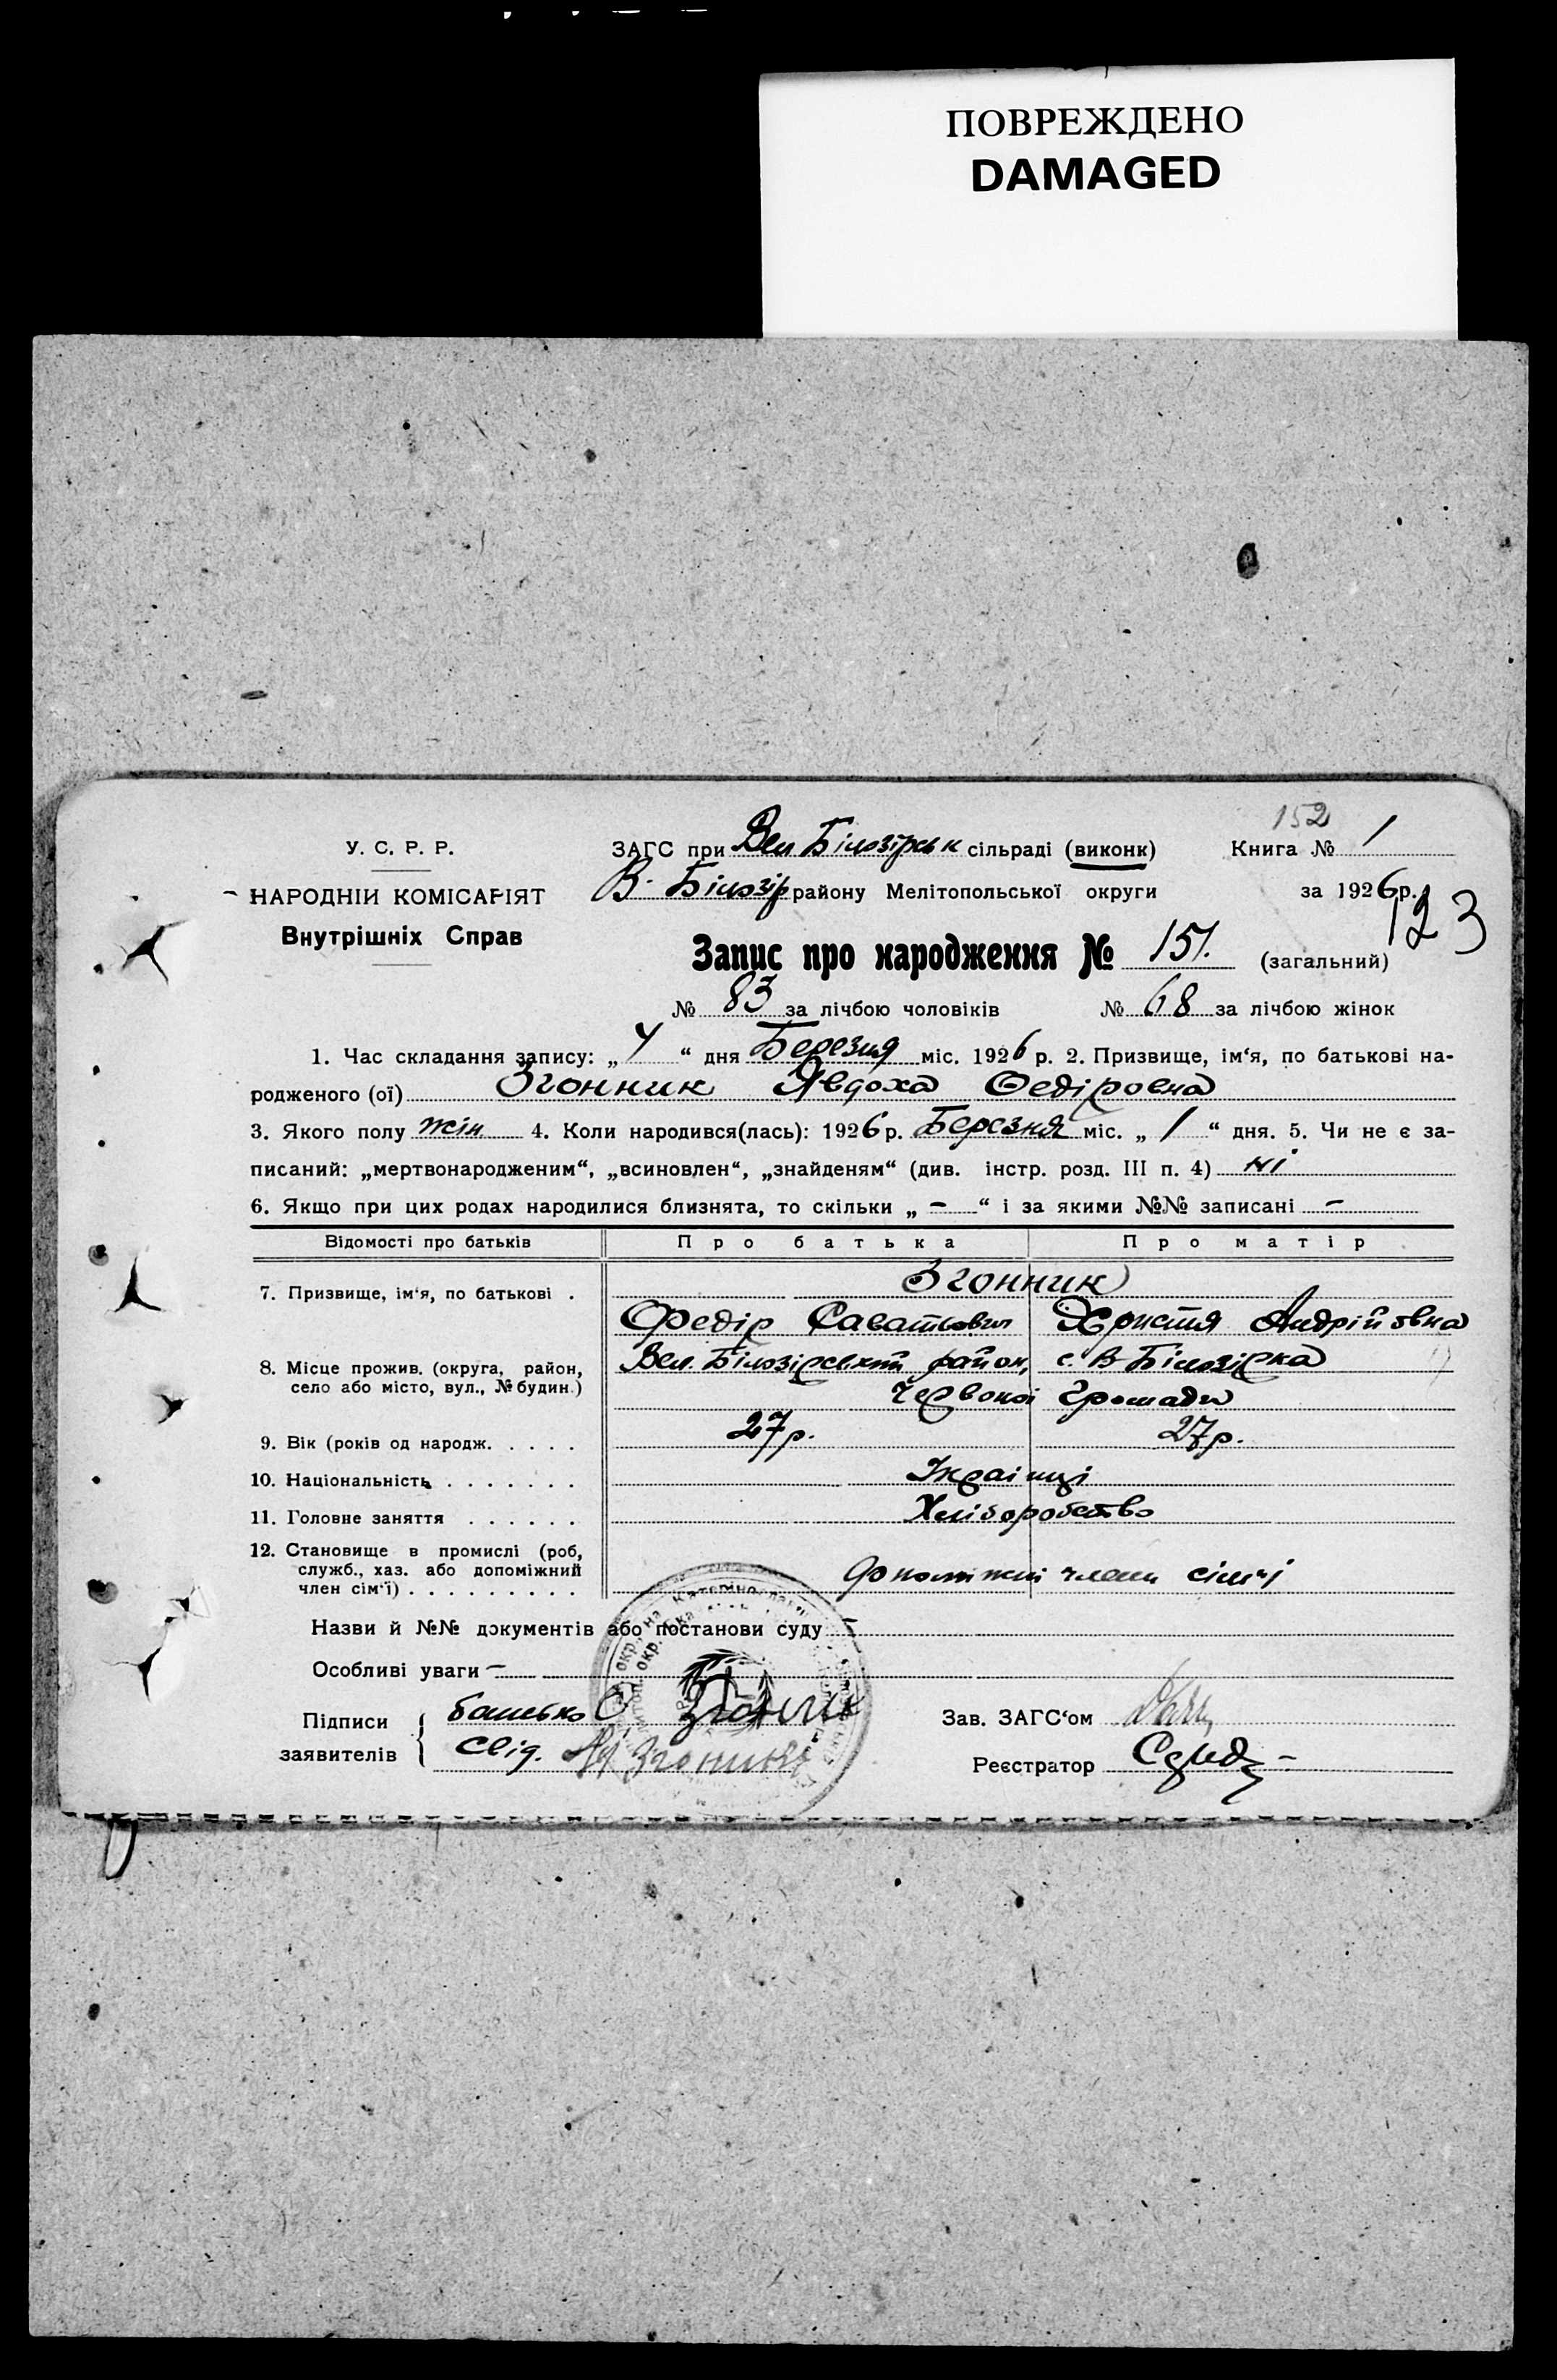 ПОВРЕЖДЕНО
DAMAGED
152
У. С. Р. Р.
ЗАГС при Вел Білозірськ сільраді (виконк)
Книга № 1
НАРОДНІЙ КОМІСАРІЯТ
В. Білозір району Мелітопольської округи
за 1926 р.
123
Внутрішніх Справ
Запис про народження № 151. (загальний)
№ 83 за лічбою чоловіків № 68 за лічбою жінок
1. Час складання запису: „ 4 “ дня Березня міс. 1926 р. 2. Призвище, ім‘я, по батькові на-
родженого (ої) Згонник Явдоха Федіровна
3. Якого полу жін 4. Коли народився(лась): 1926 р. Березня міс. „ 1 “ дня. 5. Чи не є за-
писаний: „мертвонародженим“, „всиновлен“, „знайденям“ (див. інстр. розд. III п. 4) ні
6. Якщо при цих родах народилися близнята, то скільки „ – “ і за якими №№ записані –
Відомості про батьків Про батька Про матір
7. Призвище, ім‘я, по батькові . Згонник
Федір Саватьович Христя Андрійовна
8. Місце прожив. (округа, район, село або місто, вул., № будин.) Вел. Білозірський район, с. В Білозірка
Червоної Громади
9. Вік (років од народж. . . . . 27 р. 27 р.
10. Національність . . . . . . . Українці
11. Головне заняття . . . . . . Хліборобство
12. Становище в промислі (роб,
служб., хаз. або допоміжний
член сім‘ї) . . . . . . . . . допоміжні члени сім'ї
Назви й №№ документів або постанови суду –
Особливі уваги –
Підписи заявителів { батько Згонник
свід. Згонник
Зав. ЗАГС‘ом
Реєстратор